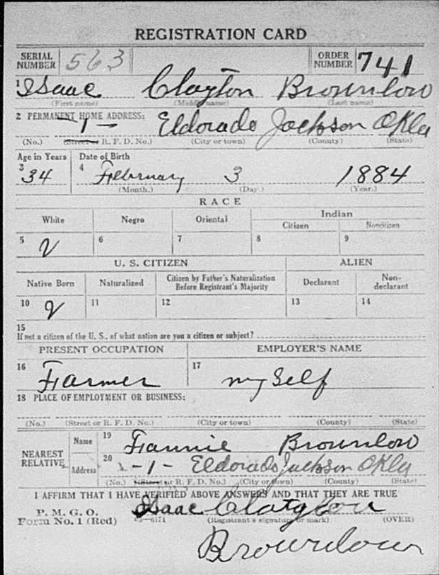 REGISTRATION CARD
SERIAL NUMBER 563 ORDER NUMBER 741
1 Isaac Clayton Brownlow
(First name) (Middle name) (Last name)
2 PERMANENT HOME ADDRESS:
-1- Eldorado Jackson Okla
(No.) (Street or R. F. D. No.) (City or town) (County) (State)
Age in Years Date of Birth
3 34 4 February 3 1884
(Month.) (Day.) (Year.)
RACE
White Negro Oriental Indian
Citizen Noncitizen
5 6 7 8 9
U. S. CITIZEN ALIEN
Native Born Naturalized Citizen by Father's Naturalization Before Registrant's Majority Declarant Non-declarant
10 11 12 13 14
15
If not a citizen of the U. S., of what nation are you a citizen or subject?
PRESENT OCCUPATION EMPLOYER'S NAME
16 Farmer 17 my self
18 PLACE OF EMPLOYMENT OR BUSINESS:
(No.) (Street or R. F. D. No.) (City or town) (County) (State)
NEAREST RELATIVE
Name 19 Fannie Brownlow
Address 20 -1- Eldorado Jackson Okla
(No.) (Street or R. F. D. No.) (City or town) (County) (State)
I AFFIRM THAT I HAVE VERIFIED ABOVE ANSWERS AND THAT THEY ARE TRUE
P. M. G. O.
Form No. 1 (Red) Isaac Clatyton
(Registrant's signature or mark) (OVER)
Brownlow